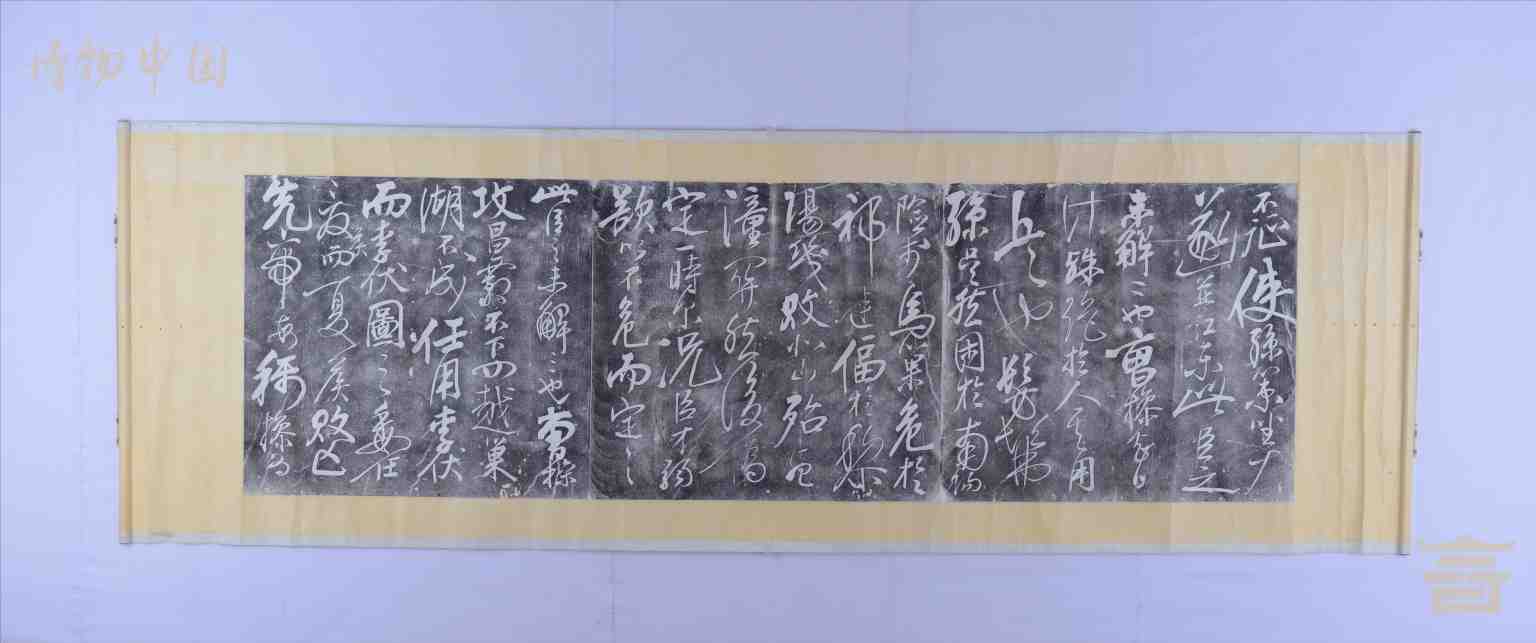 博物中国
不征使孫策坐大
遂並江東此臣之
未解二也曹操智
計殊絕於人其用
兵也髣髴
孫吳然困於南陽
險於烏巢危於
祁連偪於黎
陽幾敗北山殆死
潼關然後偽
定一時尔況臣才弱
欲以不危而定之
此臣之未解三也曹操
攻昌霸不下四越巢
湖不成任用李伏
而李伏圖之委任
夏侯而夏侯敗亡
先帝每稱操為